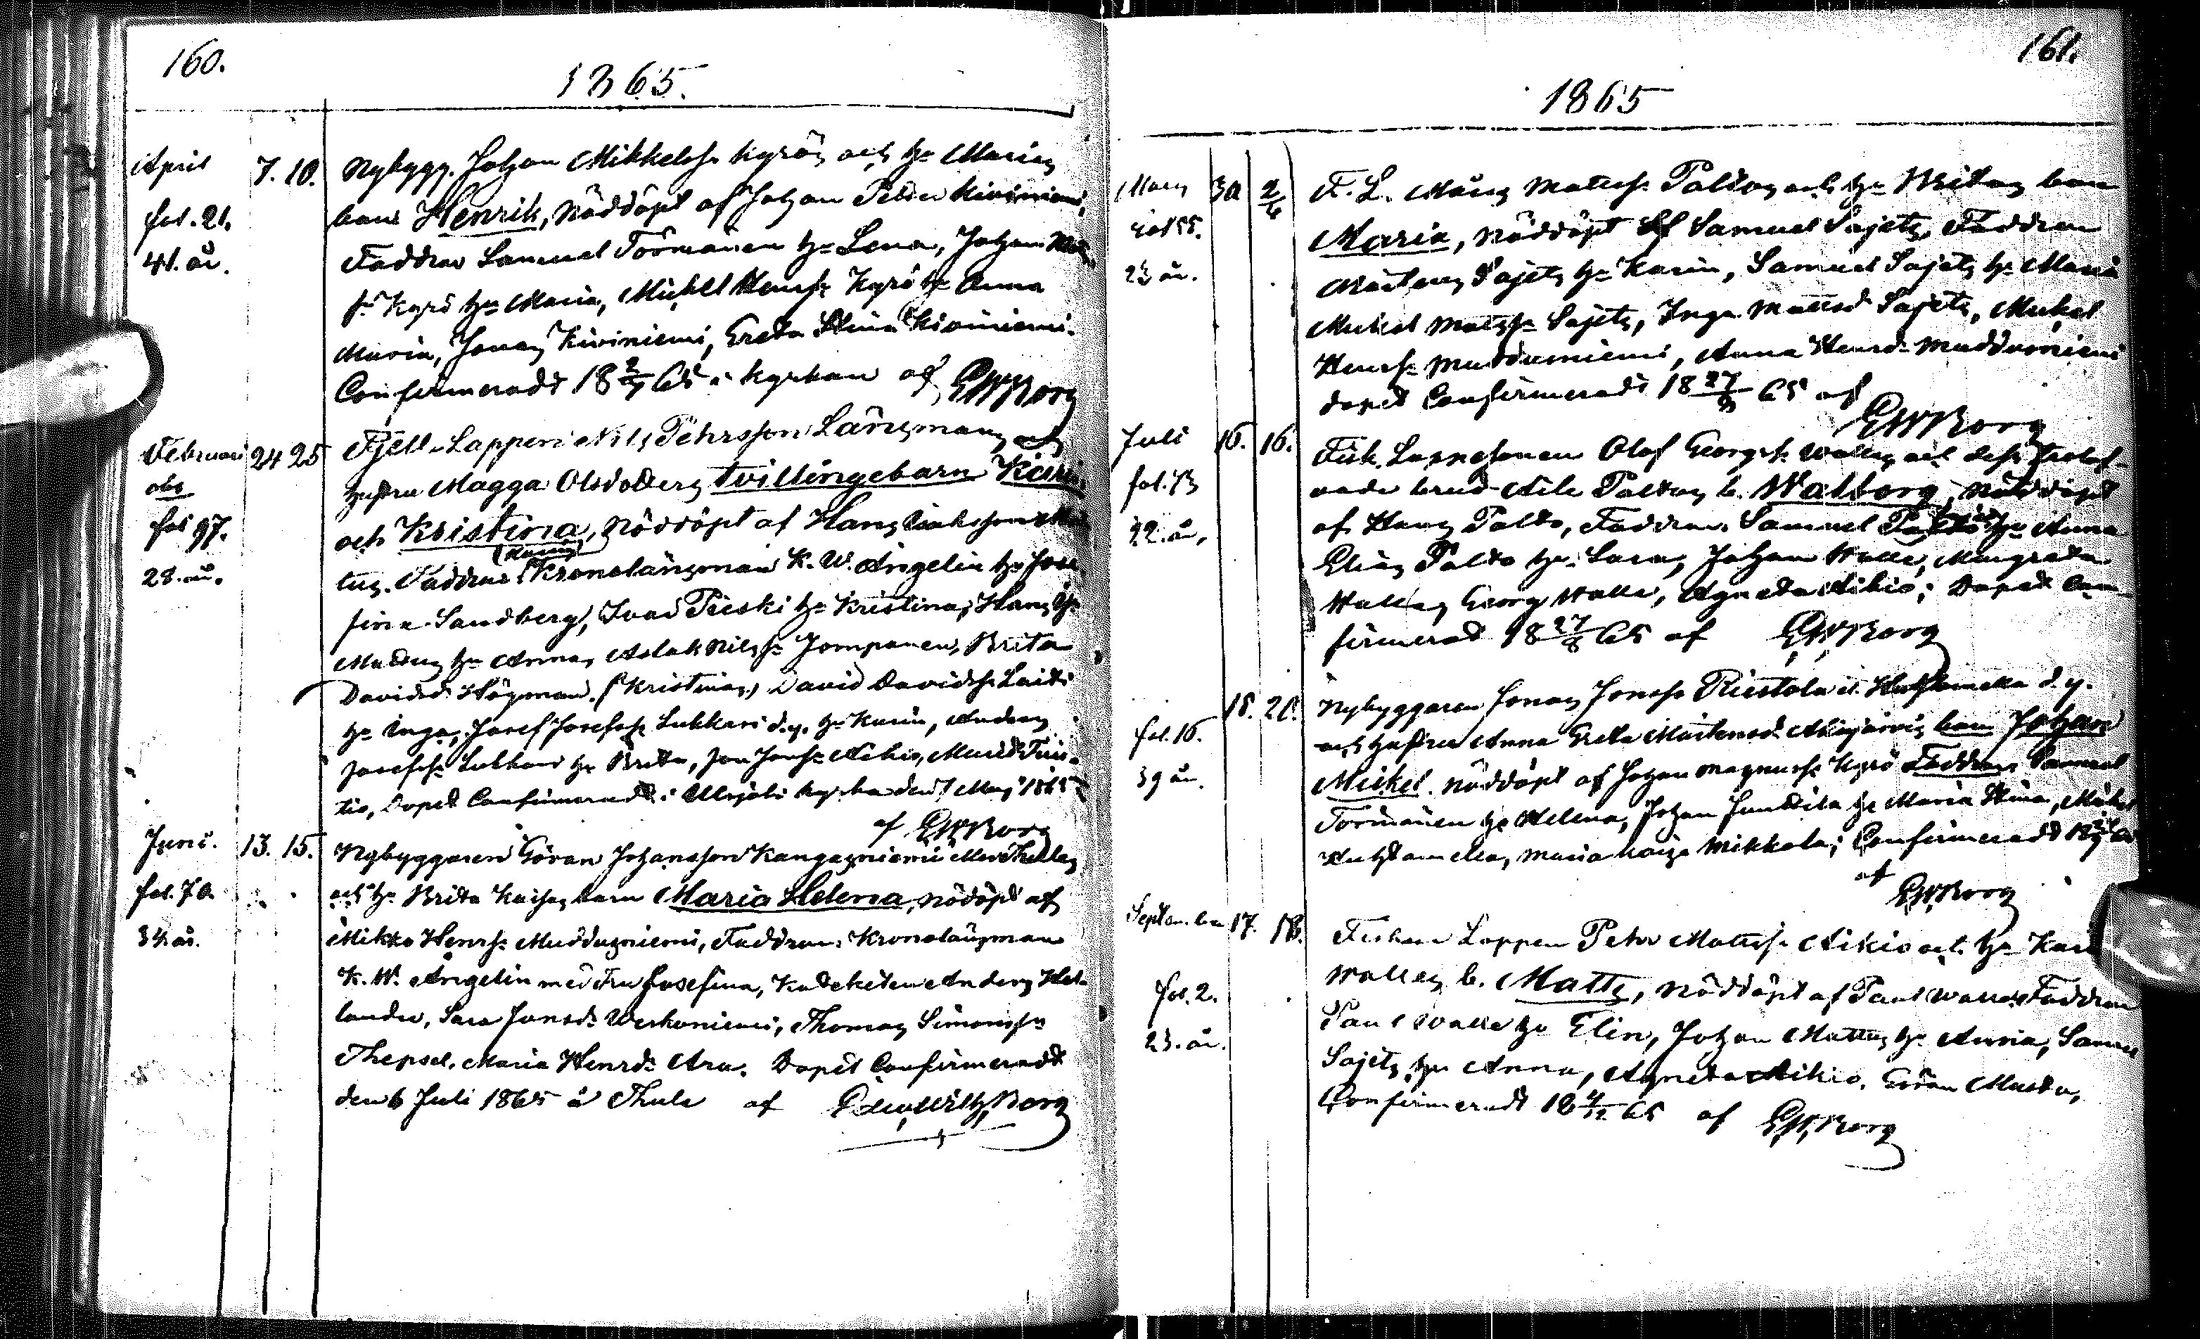 160.
1865.
April 7. 10. Nybygg. Johan Mikkelss. Kyrös och h. Marias
fol. 21. barn Henrik, nöddöpt af Johan Petter Kiviniemi,
41. år. Faddrar Samuel Törmänen h. Lena, Johan
Kyrö h. Maria, Michel Henrss. Kyrö h. Anna
Maria, Jonas Kiviniemi, Greta Stina Kiviniemi.
Confirmeradt 18 2/7 65 i kyrkan af EWBorg
Februari 24 25 Fjell-Lappen Nils Pehrsson Länsmans och
obs hustru Magga Olsdotters tvillingebarn Karin
fol 97. och Kristina, nöddöpt af Hans Isaksson
28. år. tus. Faddrar (Karins) Kronolänsman K. W. Ängelin h. Jose-
fina Sandberg, Ivar Pieski h. Kristina, Hans
Mattus h. Anna, Aslak Nilss. Jomppanen, Brita
Davidsd. Högman. (Kristinas) David Davidss. Laiti
h. Inga, Josef Josefss. Lukkari d.y. h. Karin, Anders
Josefss. Lukkari h. Brita, Jon Jonss. Aikio,
tio, Dopet Confirmeradt i Utsjoki kyrka den 7 Maj 1865
af EWBorg
Juni. 13. 15. Nybyggaren Göran Johansson Kangasniemi
och h. Brita Kaisas barn Maria Helena, nöddöpt af
fol. 70. Mikko Henrss. Muddusniemi, Faddrar: Kronolänsman
34 år. K. W. Ängelin med Fru Josefina, Kateketen Anders Hel-
lander, Sara Jonsd. Werkoniemi, Thomas Simonss.
Thepsel, Maria Henrsd. Aru. Dopet Confirmeradt
den 6 Juli 1865 å Thule af Edw Wilh Borg
161.
1865
Maij 30 2/6 F. L. Måns Matss. Paltos och h. Britas barn
fol 55. Maria, nöddöpt af Samuel Sajets, Faddrar
23 år. Mårten Sajets h. Karin, Samuel Sajets h. Maria
Michel Matss. Sajets, Inga Mattsd Sajets, Mickel
Henrss. Muddusniemi, Anna Henrsd. Muddusniemi
dopet Confirmeradt 18 27/8 65 af
EWBorg
Juli 16. 16. Fisk. Lappssonen Olof Georgss. Walles och dess trolof-
fol. 73 vade brud Aile Paltos b. Walborg, nöddöpt
22. år, af Hans Palto, Faddrar, Samuel h. Anna
Elias Palto h. Sara, Johan Walle, Margreta
Walle, Georg Walle, Agneta Aikio; Dopet Con-
firmerad 18 27/8 65 af EWBorg
18. 20. Nybyggaren Jonas Jonss. Riestola d. y.
fol. 16. och hustru Anna Greta Mårtensd. Akujärvis barn Johan
39 år. Mickel. nöddöpt af Johan Magnuss. Kyrö Faddrar Samuel
Törmänen h. Helena, Johan h. Maria Stina, Mickel
Maria Kaisa Mikkola; Confirmeradt
af
EWBorg
September 17. 18. Fiskare Lappen Petter Matss. Aikio och h.
fol. 2. Walles b. Matts, nöddöpt af Paul Walle. Faddrar
23. år. Paul Walle h. Elin, Johan Mattus h. Anna,
Sajets h. Anna, Agneta Aikio, Göran Musta,
Confirmeradt 18 4/12 65 af EWBorg